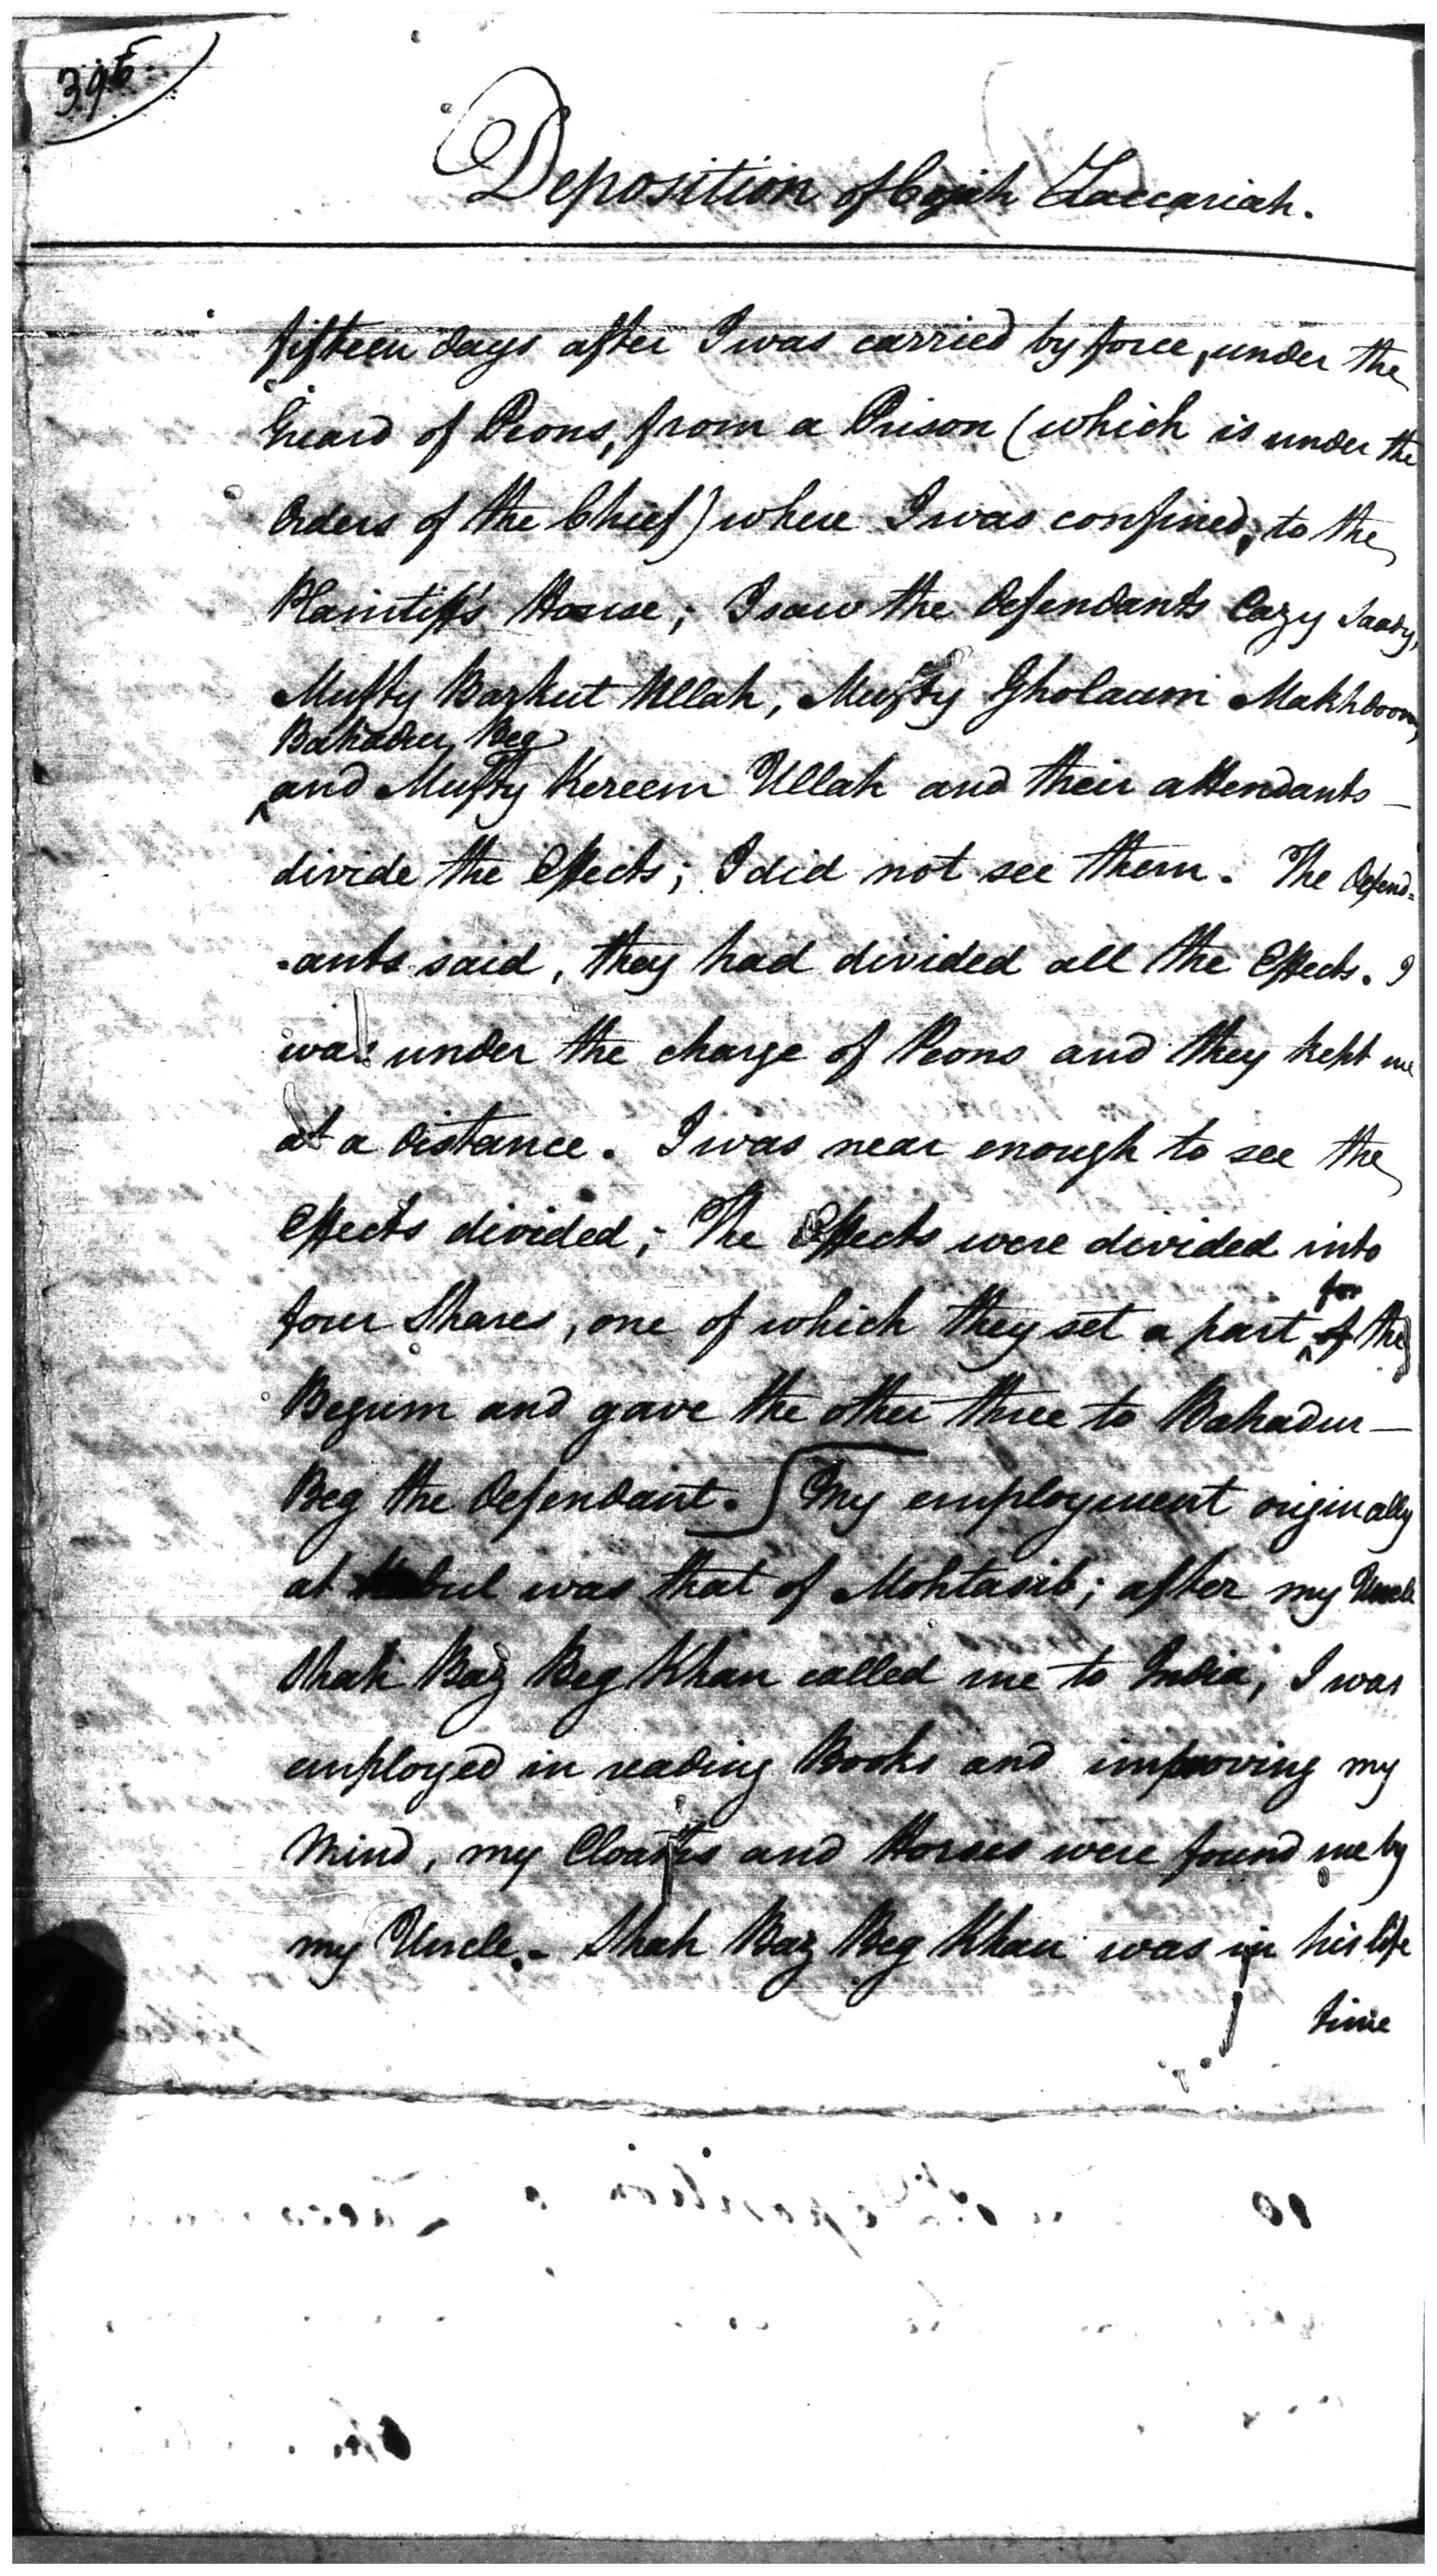 396.
Deposition of Cojah Zaccariah.
fifteen days after I was carried by force, under the
Guard of Peons, from a Prison (which is under the
Orders of the Chief) where I was confined, to the
Plaintiff's House; I saw the Defendants Cazy Saady,
Mufty Barkut Ullah, Mufty Gholaum Makhdoom,
Bahadur Beg
and Mufty Kereem Ullah and their attendants
divide the Effects; I did not see them. The Defend=
-ants said, they had divided all the Effects. I
was under the charge of Peons and they kept me
at a distance. I was near enough to see the
Effects divided; The Effects were divided into
for
four Shares, one of which they set a part of the
Begum and gave the other three to Bahadur
Beg the Defendant. My employment originally
at Kabul was that of Mohtasib; after my Uncle
Shah Baz Beg Khan called me to India, I was
employed in reading Books and improving my
Mind, my Cloaths and Horses were found me by
my Uncle. Shah Baz Beg Khan was in his life
time